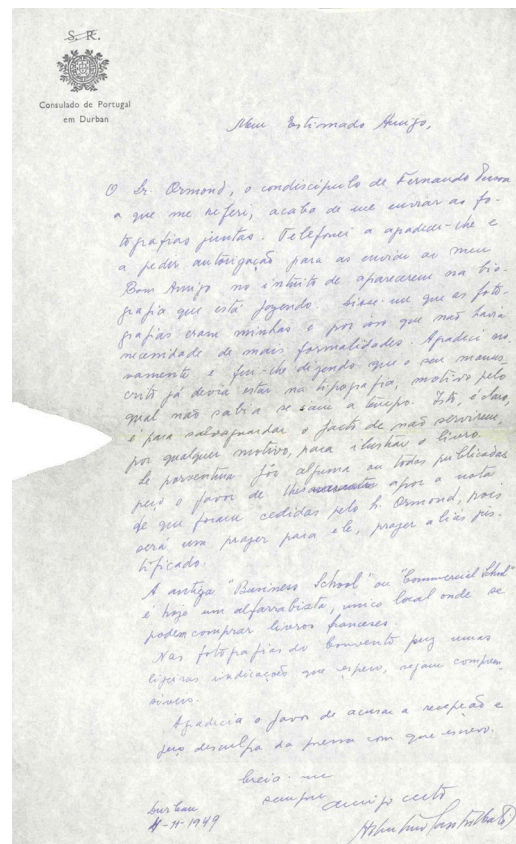 S. R.
Consulado de Portugal
em Durban
Meu Estimado Amigo,
O Sr. Ormond, o condiscípulo de Fernando Pessoa
a que me referi, acaba de me enviar as fo-
tografias juntas. Telefonei a agradecer-lhe e
a pedir autorização para as enviar ao meu
Bom Amigo no intuito de aparecerem na bio-
grafia que está fazendo. Disse-me que as foto-
grafias eram minhas e por isso que não havia
necessidade de mais formalidades. Agradeci no-
vamente e fui-lhe dizendo que o seu manus-
crito já devia estar na tipografia, motivo pelo
qual não sabia se iam a tempo. Isto, é claro,
é para salvaguardar o facto de não servirem,
por qualquer motivo, para ilustrar o livro.
Se porventura fôr alguma ou todas publicadas
peço o favor de apor a nota
de que foram cedidas pelo Sr. Ormond, pois
será um prazer para ele, prazer aliás jus-
tificado.
A antiga "Business School" ou "Commercial School"
é hoje um alfarrabista, unico local onde se
podem comprar livros franceses.
Nas fotografias do Convento puz umas
ligeiras indicações que espero, sejam compreen-
siveis.
Agradecia o favor de acusar a recepção e
peço desculpa da pressa com que escrevo.
Creia-me
sempre amigo certo
Durban
4-11-1949